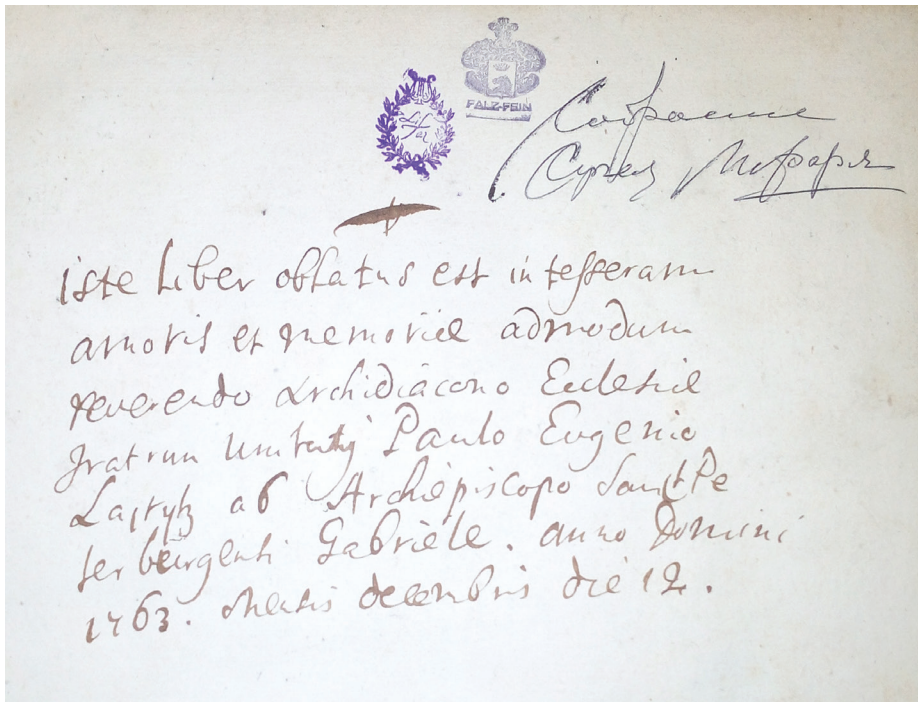 FALZ-FEIN
Lifar
Собрание
Сергея Лифаря
iste Liber oblatus est in tesseram
amoris et memoriæ admodum
reverendo Archidiacono Ecclesiæ
fratrum Unitatis Paulo Eugenio
ab Archiepiscopo SanctPe
terburgensi Gabriele. anno Domini
1763. mensis decembris die 12.